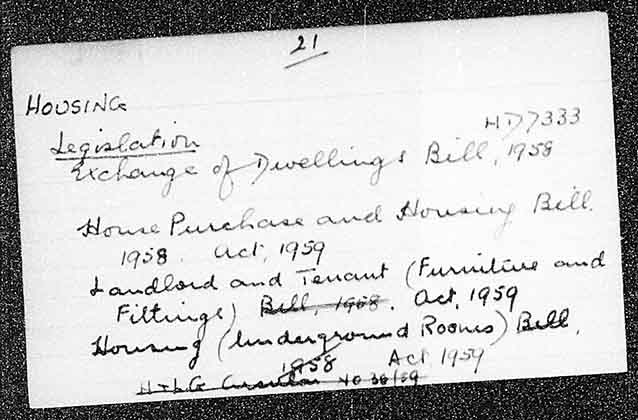 21
HOUSING
HD7333
Legislation
Exchange of Dwellings Bill, 1958
House Purchase and Housing Bill.
1958. Act, 1959
Landlord and Tenant (Furniture and
Fittings) Bill, 1958. Act, 1959
Housing (Underground Rooms) Bill,
1958 Act 1959
H+LG Circular 40 36/59